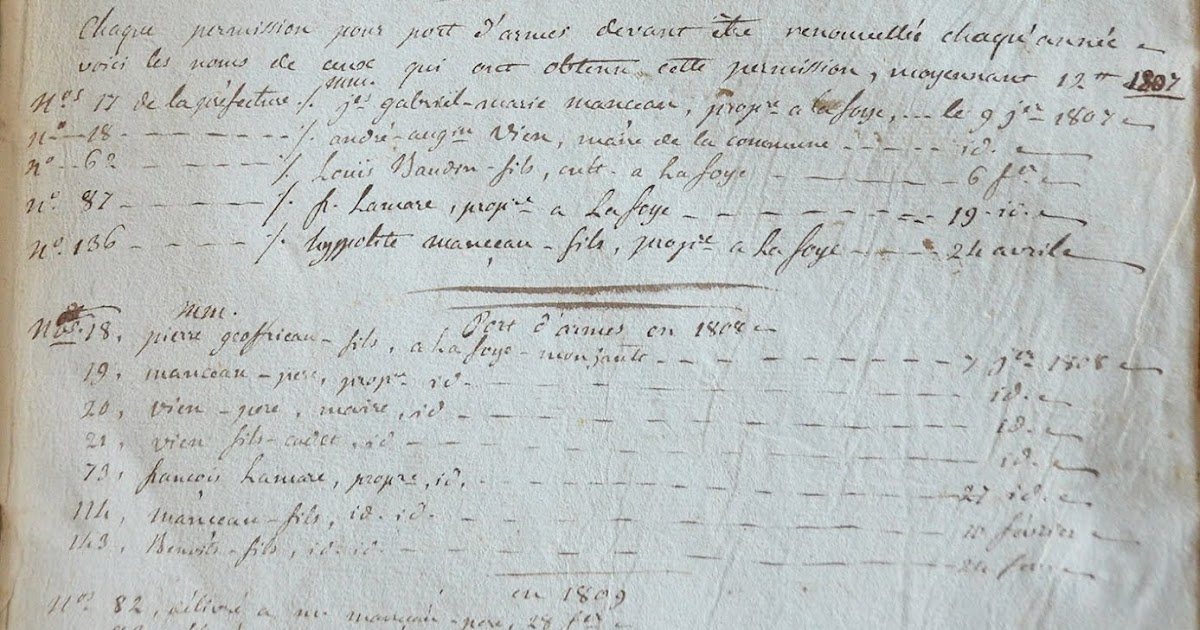 Chaque permission pour port d'armes devant être renouvellée chaqu'année
voici les noms de ceux qui ont obtenu cette permission, moyennant 12 tt 1807
mm.
Nos 17 de la préfecture /. jes gabriel-marie manceau, propre a la foye, ... le 9 jer 1807
no 18 - - - - - /. andré-augin Vien, maire de la commune - - - - - id.
no 62 - - - - - /. Louis Baudin-fils, cult. a La foye - - - - - 6 fer
no 87 - - - - - /. fr. Lamare, propre a La foye - - - - - 19. id.
no 136 - - - - - /. hyppolite manceau-fils, propre a La foye - - - - - 24 avril
Port d'armes en 1808
mm.
Nos. 18, pierre geoffrieau-fils, a La foye-monjault - - - - - 7 jer 1808
19, manceau-pere, propre id. - - - - - id.
20, vien-pere, maire, id - - - - - id.
21, vien fils-cadet, id - - - - - id.
73, françois Lamare, propre, id, - - - - - 27 id.
114, manceau-fils, id. id. - - - - - 10 février
143, fils, id. id. - - - - - 24
en 1809
Nos 82, délivré a mr manceau-pere, 28 fer